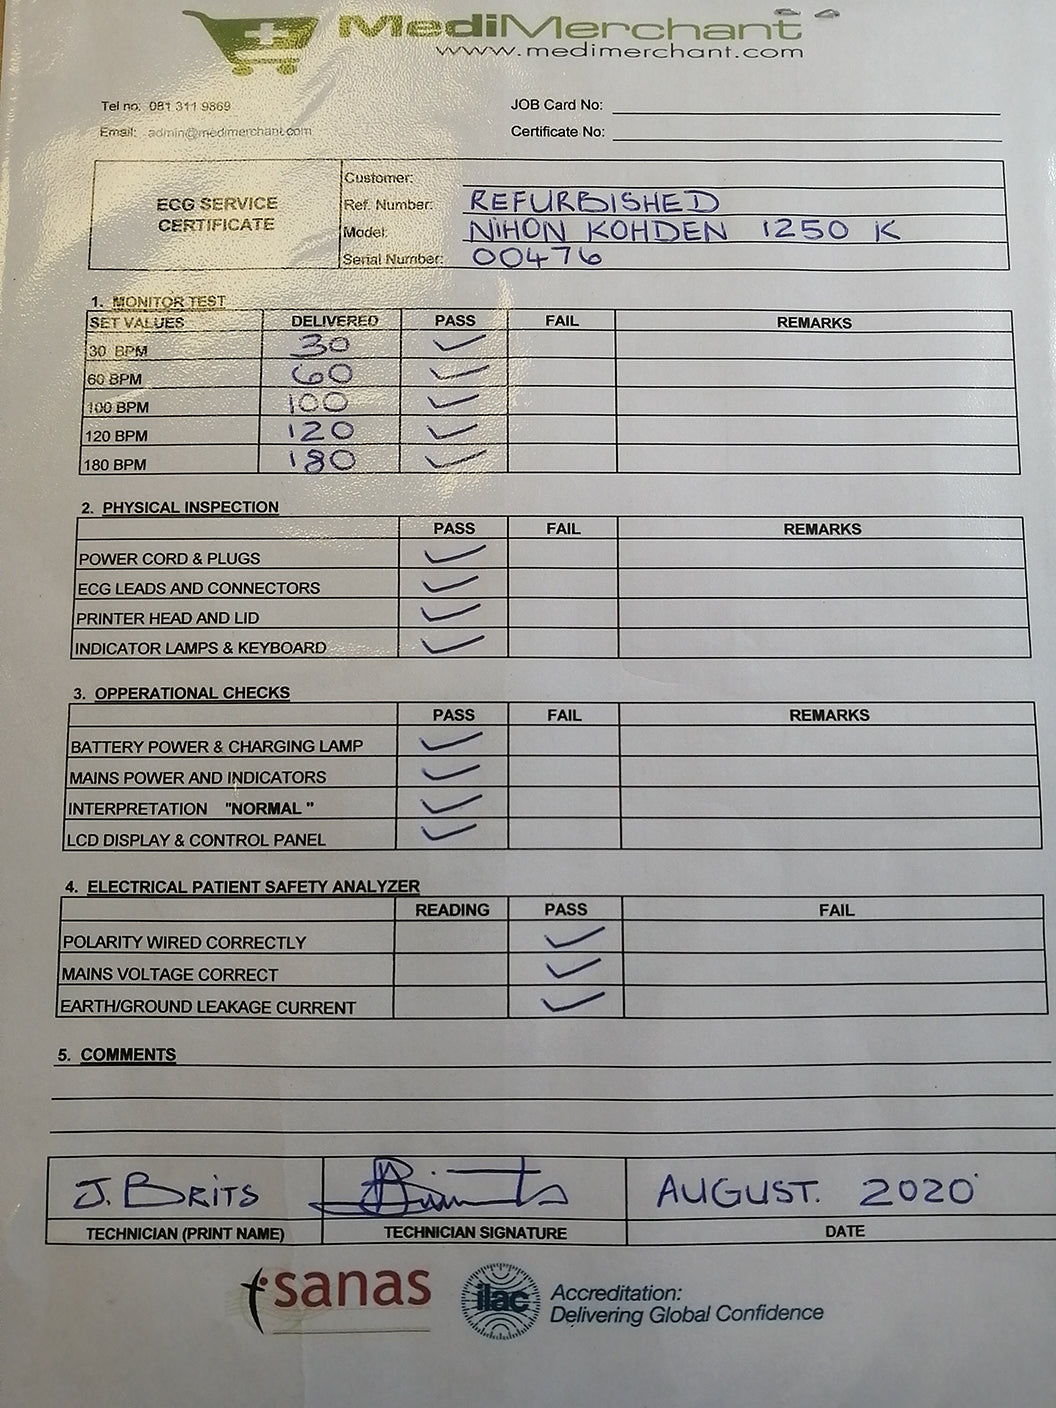 MediMerchant
www.medimerchant.com
Tel no: 081 311 9869
JOB Card No:
Email: admin@medimerchant.com
Certificate No:
ECG SERVICE
CERTIFICATE
Customer:
Ref. Number: REFURBISHED
Model: NIHON KOHDEN 1250 K
Serial Number: 00476
1. MONITOR TEST
SET VALUES DELIVERED PASS FAIL REMARKS
30 BPM 30 ✓
60 BPM 60 ✓
100 BPM 100 ✓
120 BPM 120 ✓
180 BPM 180 ✓
2. PHYSICAL INSPECTION
PASS FAIL REMARKS
POWER CORD & PLUGS ✓
ECG LEADS AND CONNECTORS ✓
PRINTER HEAD AND LID ✓
INDICATOR LAMPS & KEYBOARD ✓
3. OPPERATIONAL CHECKS
PASS FAIL REMARKS
BATTERY POWER & CHARGING LAMP ✓
MAINS POWER AND INDICATORS ✓
INTERPRETATION "NORMAL" ✓
LCD DISPLAY & CONTROL PANEL ✓
4. ELECTRICAL PATIENT SAFETY ANALYZER
READING PASS FAIL
POLARITY WIRED CORRECTLY ✓
MAINS VOLTAGE CORRECT ✓
EARTH/GROUND LEAKAGE CURRENT ✓
5. COMMENTS
J. BRITS AUGUST. 2020
TECHNICIAN (PRINT NAME) TECHNICIAN SIGNATURE DATE
sanas
ilac
Accreditation:
Delivering Global Confidence